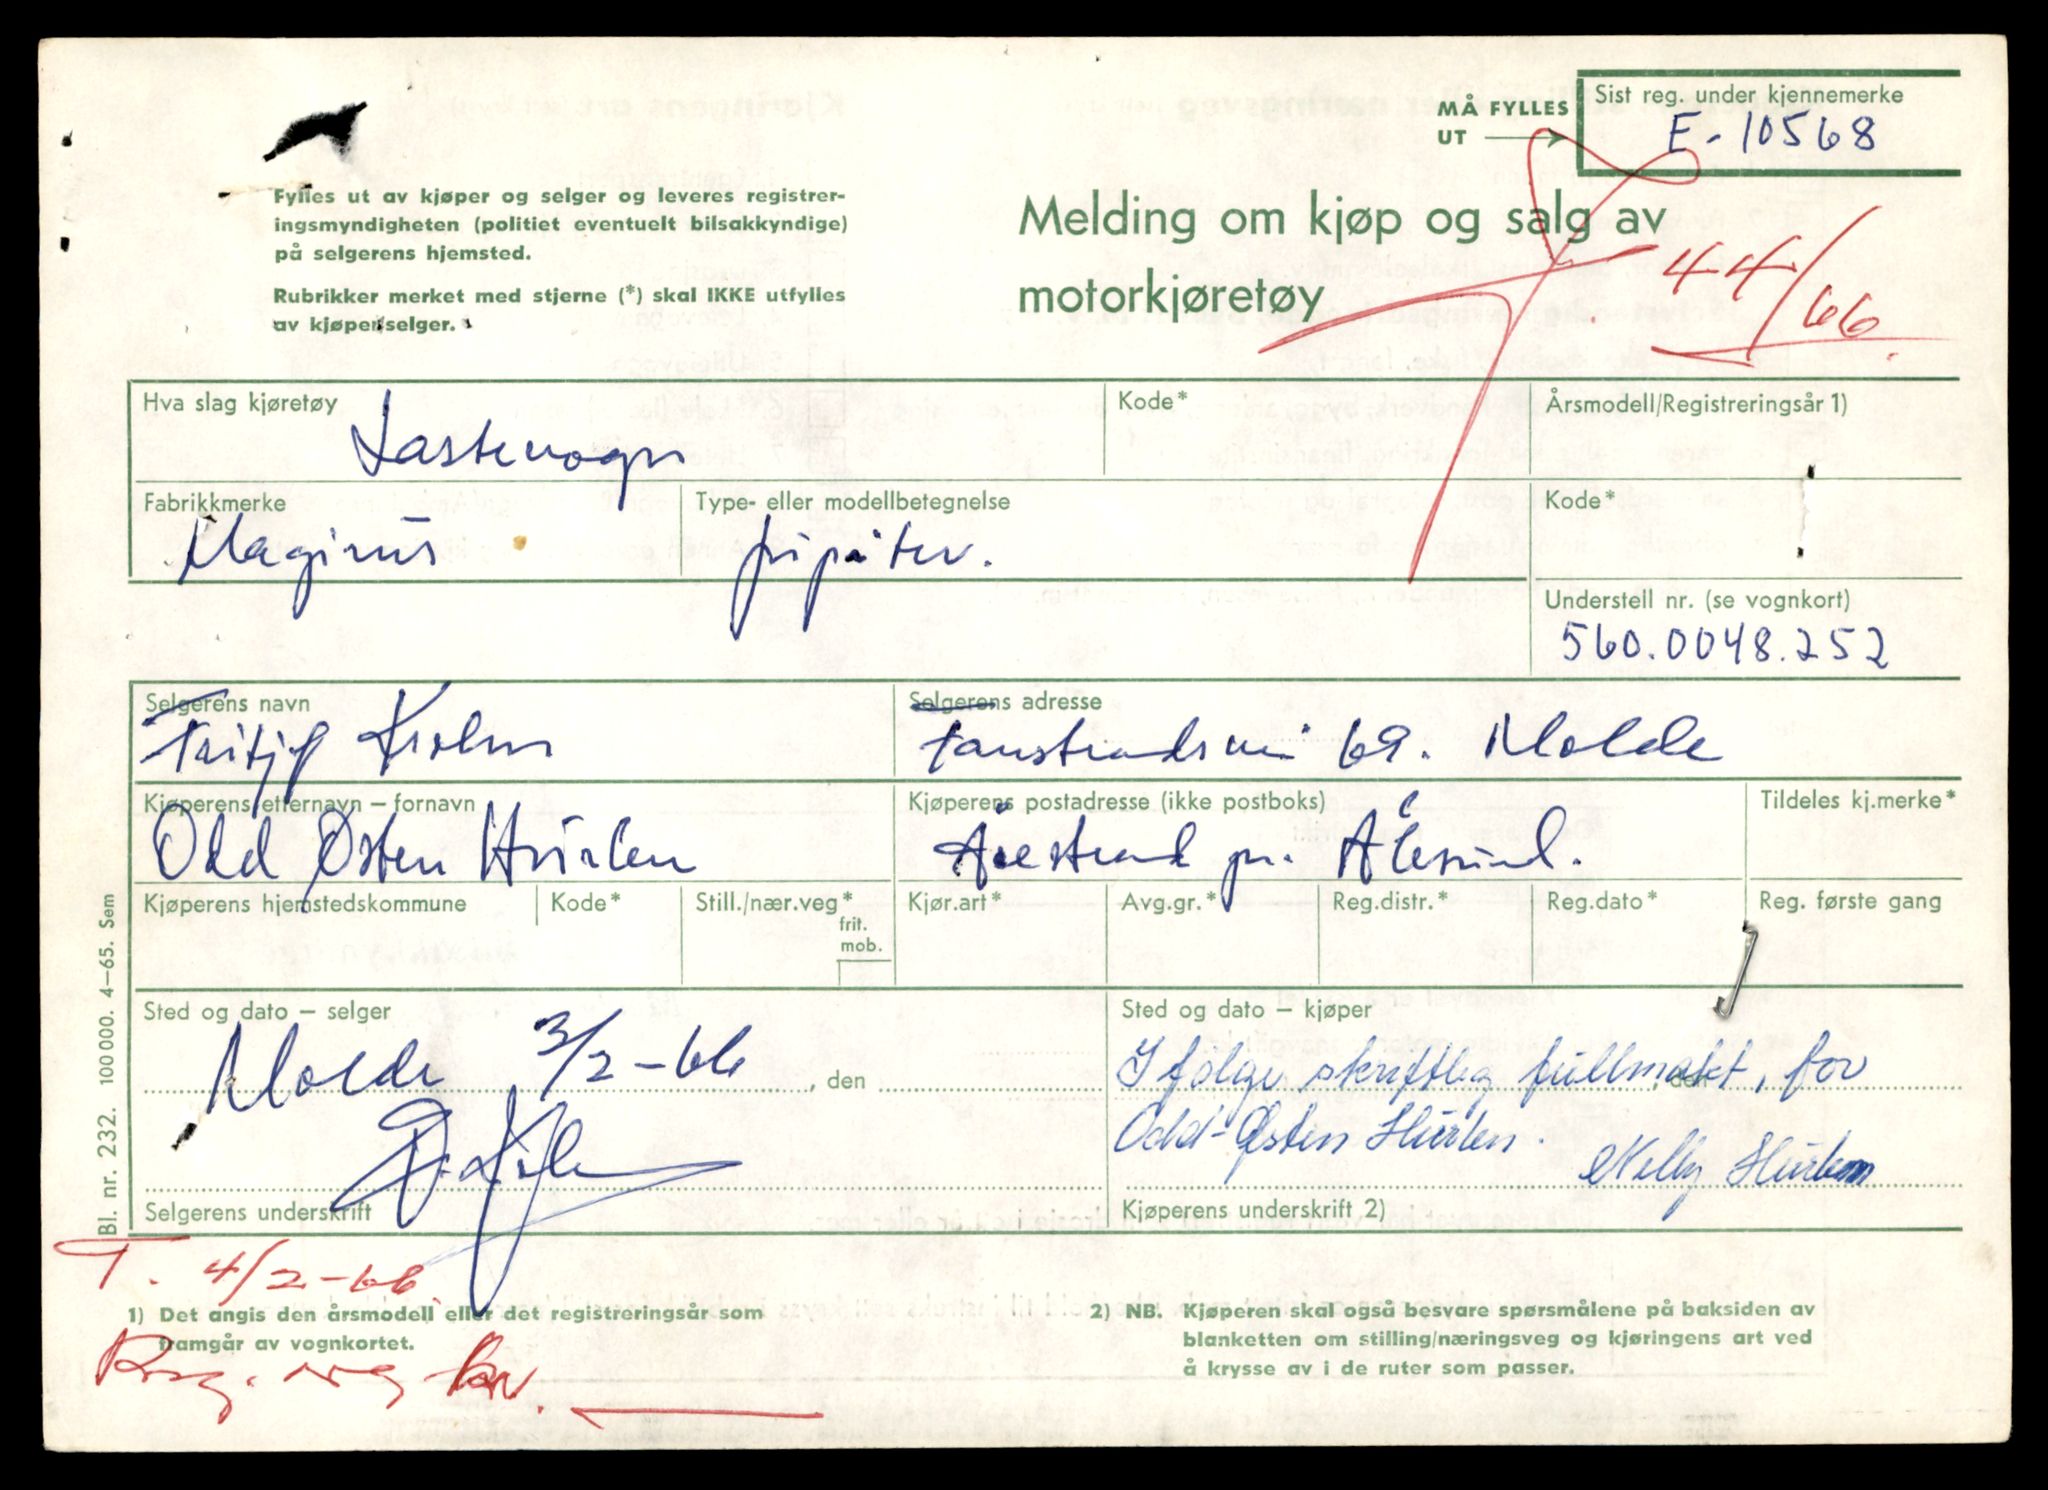 MÅ FYLLES UT
Sist reg. under kjennemerke
E-10568
Fylles ut av kjøper og selger og leveres registrer-
ingsmyndigheten (politiet eventuelt bilsakkyndige)
på selgerens hjemsted.
Rubrikker merket med stjerne (*) skal IKKE utfylles
av kjøper/selger.
Melding om kjøp og salg av
motorkjøretøy
44/66.
Hva slag kjøretøy
Lastevogn
Kode*
Årsmodell/Registreringsår 1)
Fabrikkmerke
Magirus
Type- eller modellbetegnelse
jupiter.
Kode*
Understell nr. (se vognkort)
560.0048.252
Selgerens navn
Fritjof
Selgerens adresse
69. Molde
Kjøperens etternavn – fornavn
Odd Østen Hurlen
Kjøperens postadresse (ikke postboks)
Åsestrand pr. Ålesund.
Tildeles kj.merke*
Kjøperens hjemstedskommune
Kode*
Still./nær.veg*
frit.
mob.
Kjør.art*
Avg.gr.*
Reg.distr.*
Reg.dato*
Reg. første gang
Sted og dato – selger
Molde 3/2-66
, den
Selgerens underskrift
Sted og dato – kjøper
Ifølge skriftlig fullmakt, for
, den
Odd-Østen Hurlen.
Nelly Hurlen
Kjøperens underskrift 2)
Bl. nr. 232. 100 000. 4–65. Sem
T. 4/2-66.
1) Det angis den årsmodell eller det registreringsår som
framgår av vognkortet.
2) NB. Kjøperen skal også besvare spørsmålene på baksiden av
blanketten om stilling/næringsveg og kjøringens art ved
å krysse av i de ruter som passer.